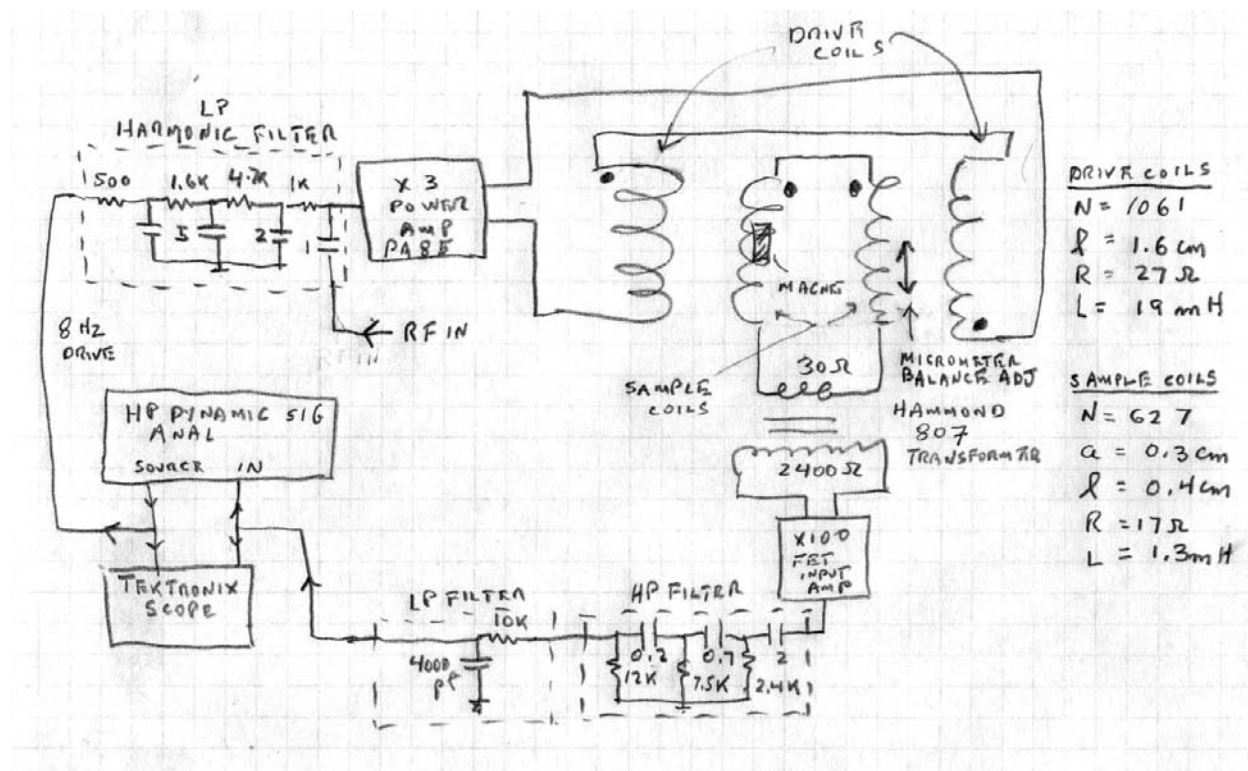 DRIVE
COILS
LP
HARMONIC FILTER
500
1.6K
4.7K
1K
5
2
1
X 3
POWER
AMP
PA85
RF IN
RF IN
8 HZ
DRIVE
MAGNET
30Ω
SAMPLE
COILS
MICROMETER
BALANCE ADJ
HAMMOND
807
TRANSFORMER
2400Ω
HP DYNAMIC SIG
ANAL
SOURCE IN
TEKTRONIX
SCOPE
X100
FET
INPUT
AMP
LP FILTER
10K
4000
PF
HP FILTER
0.7
2
12K
7.5K
2.4K
DRIVE COILS
N = 1061
ℓ = 1.6 cm
R = 27 Ω
L = 19 mH
SAMPLE COILS
N = 627
a = 0.3 cm
ℓ = 0.4 cm
R = 17 Ω
L = 1.3 mH